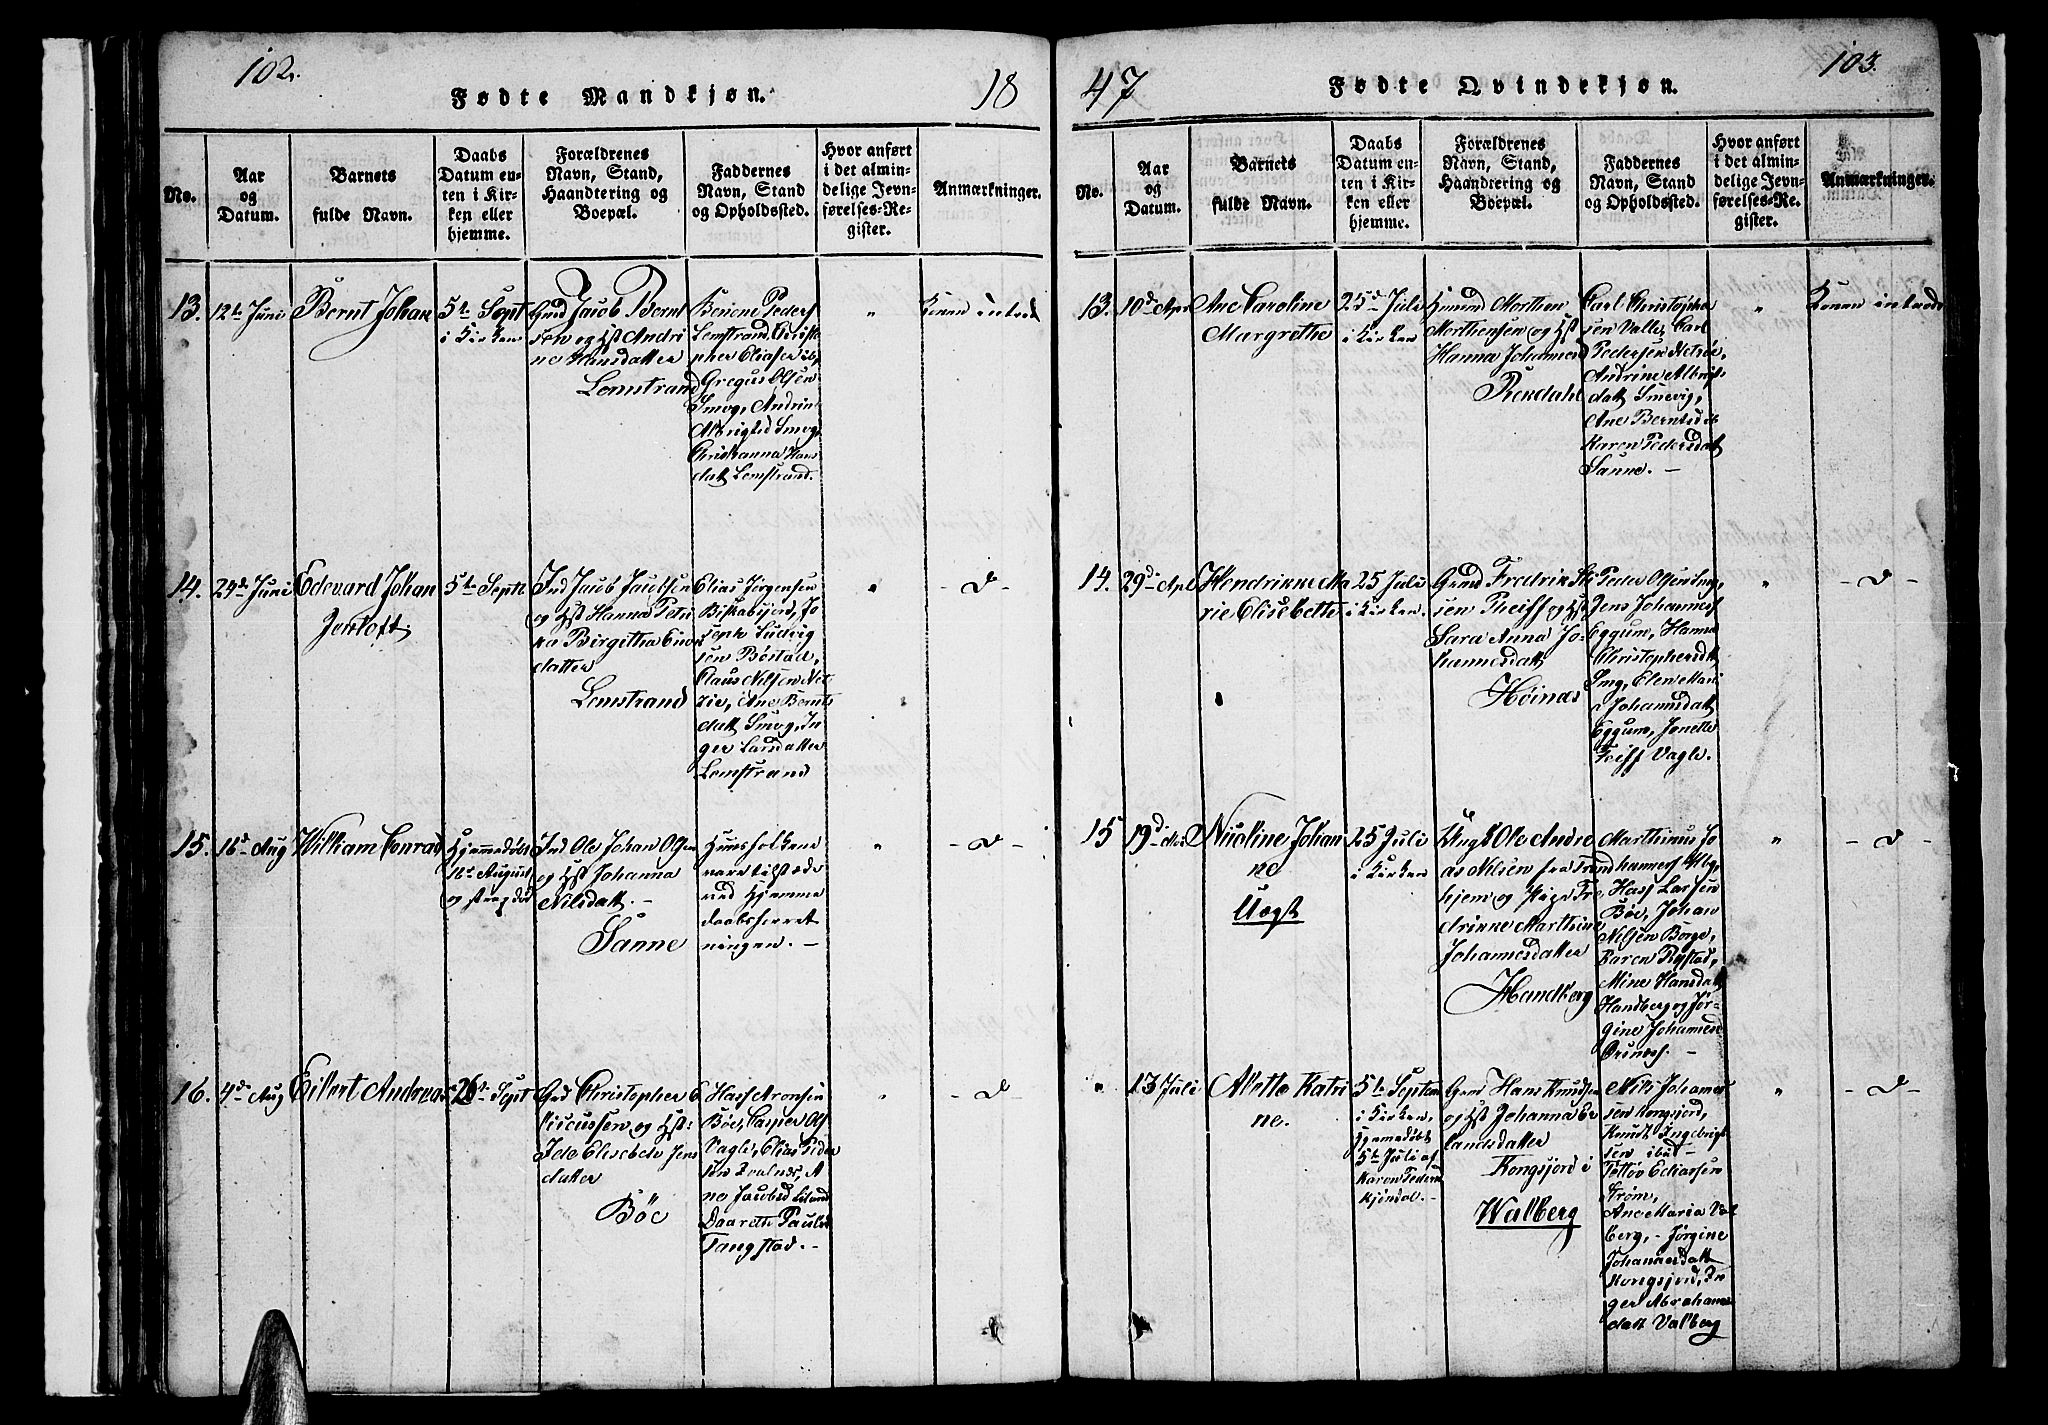 102.
Fødte Mandkjøn.
18
No.
Aar
og
Datum.
Barnets
fulde Navn.
Daabs
Datum en-
ten i Kir-
ken eller
hjemme.
Forældrenes
Navn, Stand,
Haandtering og
Boepæl.
Faddernes
Navn, Stand
og Opholdssted.
Hvor anført
i det almin-
delige Jevn-
førelses-Re-
gister.
Anmærkninger.
13.
12te Juni
Bernt Johan
5te Sept
i Kirken
Gmd Jacob Bernt
sen og Hst Andri
ne Hansdatter
Lemstrand
Lemstrand, Christo
pher Eliasen ibd
Gregus Olsen
Smog, Andrine
Albrigtsd Smog
Christianna Hans
datt Lemstrand.
"
14.
24de Juni
Edevard Johan
Jentoft.
5te Septr
Ind Jacob Jacobsen
og Hst Hanna Petri
ka Birgitha Einer
datter
Lemstrand
Elias Jørgensen
Bjskabsjord, Jo
seph Ludvig
sen Bøstad,
Claus Nilsen
Ane Bernts
datt Smog, In
ger Larsdatter
Lemstrand
"
- d -
15.
16d Aug
William Conrad
Hjemmedøbt
16de August
og strax død
Ind Ole Johan Olsen
og Hst Johanna
Nilsdatt. -
Sanne
Huusfolkene
vare tilstæde
ved Hjemme
daabsforret
ningen. -
"
- d -
16.
4de Aug
Eilert Andreas
26te Sept
Gmd Christopher
og Hst
Ide Elisebeth Jens
datter
Böe
Hass Aronsen
Böe, Casper Ols
Vagle, Elias Peder
sen
ne Jacobsd
Daareth Paulsd
Tangstad. -
"
- d -
47
Fødte Qvindekjøn.
103.
No.
Aar
og
Datum.
Barnets
fulde Navn.
Daabs
Datum en-
ten i Kir-
ken eller
hjemme.
Forældrenes
Navn, Stand,
Haandtering og
Boepæl.
Faddernes
Navn, Stand
og Opholdssted.
Hvor anført
i det almin-
delige Jevn-
førelses-Re-
gister.
Anmærkninger.
13.
10de Apr
Ane Caroline
Margrethe
25d Juli
i Kirken
Morthen
Morthensen og Hst
Hanna Johannesd
Carl Christopher
sen Valle, Carl
Pedersen
Andrine Albrigts
datt Smevig,
Ane Berntsd ib
Karen Pedersdat
Sanne. -
"
14.
29d Apl
Hendrikke Ma
rie Elisebeth
25 Juli
i Kirken.
Gmd Fredrik
sen Theiff og Hst
Sara Anna Jo-
hannesdatt
Höinæs
Peder Olsen Smg,
Jens Johannes
Eggum, Hanna
Christophersdt
Smg, Elen Mari
e Johannsdatt
Eggum, Jonetta
Teiff Vagle.
"
- d -
15
19d
Nicoline Johan
ne
Uægt
25 Juli
i Kirken
Ungk Ole Andre
as Nilsen fra Trond
hjem og Pige Fre
drinne Marthine
Johannesdatter
Handberg
Marthinus Jo
hannes
Hass Larsen
Böe, Johan
Nilsen Borge,
Karen Rystad,
Mine Hansdatt
Handberg og Jør-
gine Johannesd
"
- d -
"
13 Juli
Alette Katri
ne.
5te Septem
i Kirken,
hjemmedøbt
5te Juli af
Karen Peders
Kjöndal. -
Gmd Hans Knudsen
og Hst Johanna Er
landsdatter
Kongsjord i
Walberg
Nils Johannes
sen Kongsjord,
Knudt Ingebrigt
sen ibid -
Strøm,
Ane Maria Val
berg, - Jørgine
Johannesdatt
Kongsjord, In
ger Abraham
datt Valberg
"
- d -